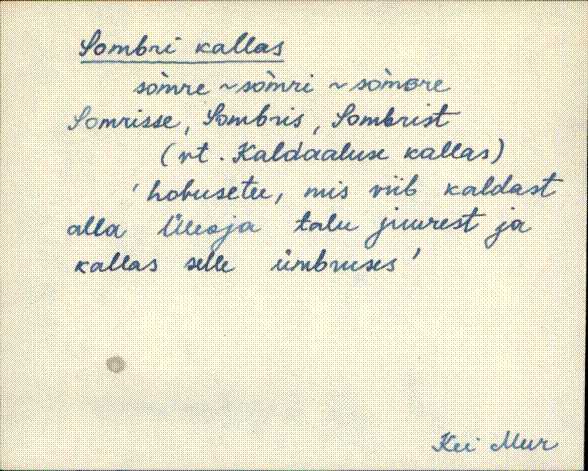 Sombri kallas
som̀re ~ som̀ri ~ som̀ore
Somrisse, Sombris, Sombrist
(vt. Kaldaaluse kallas)
'hobusetee, mis viib kaldast
alla Üleoja talu juurest ja
kallas selle ümbruses'
Kei Mur